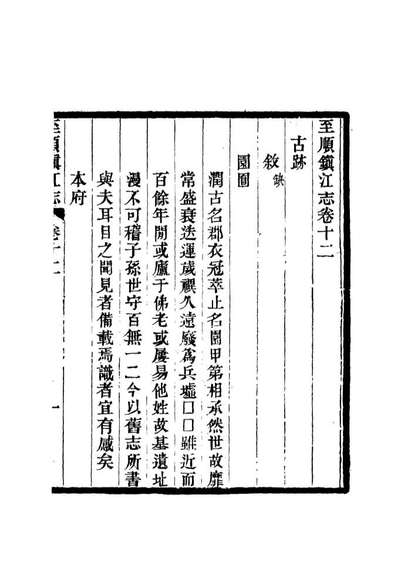 至順鎮江志卷十二
古跡
敘缺
園圃
潤古名郡衣冠萃止名園甲第相承然世故靡
常盛衰迭運歲禩久遠廢為兵墟□□雖近而
百餘年間或廬于佛老或屢易他姓故基遺址
漫不可稽子孫世守百無一二今以舊志所書
與夫耳目之聞見者備載焉識者宜有感矣
本府
至順鎮江志 卷十二 一